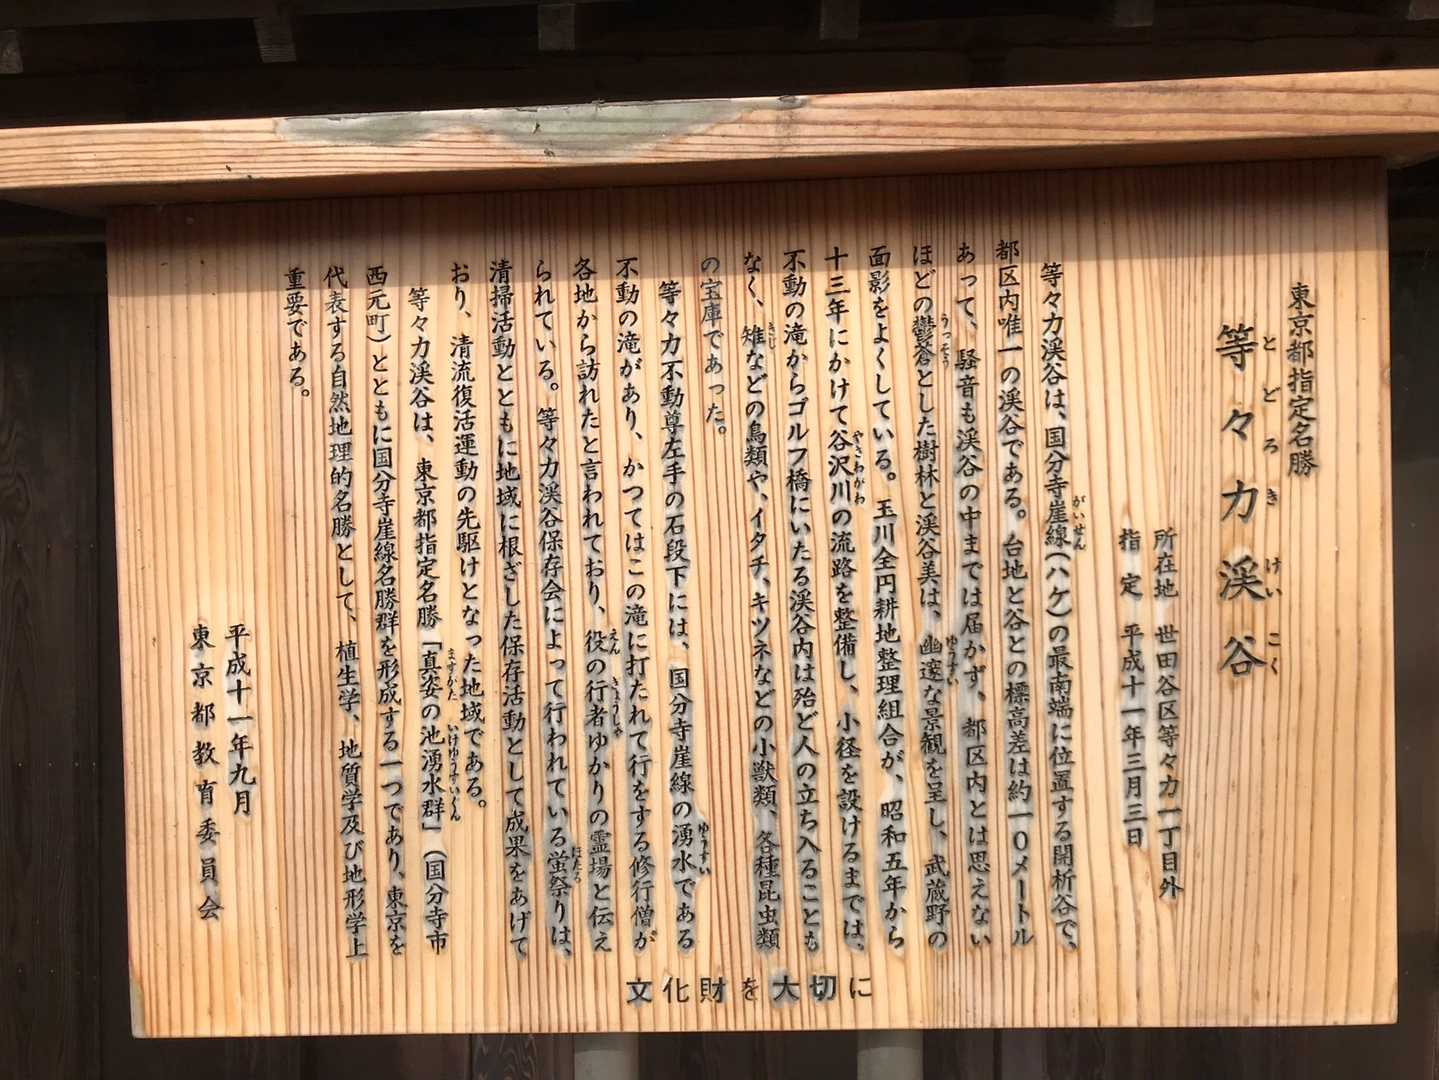 東京都指定名勝
等々力渓谷
とどろきけいこく
所在地　世田谷区等々力一丁目外
指　定　平成十一年三月三日
等々力渓谷は、国分寺崖線(ハケ)の最南端に位置する開析谷で、
がいせん
都区内唯一の渓谷である。台地と谷との標高差は約一〇メートル
あって、騒音も渓谷の中までは届かず、都区内とは思えない
ほどの鬱蒼とした樹林と渓谷美は、幽邃な景観を呈し、武蔵野の
うっそう
ゆうすい
面影をよくしている。玉川全円耕地整理組合が、昭和五年から
十三年にかけて谷沢川の流路を整備し、小径を設けるまでは、
やざわがわ
不動の滝からゴルフ橋にいたる渓谷内は殆ど人の立ち入ることも
なく、雉などの鳥類や、イタチ、キツネなどの小獣類、各種昆虫類
きじ
の宝庫であった。
等々力不動尊左手の石段下には、国分寺崖線の湧水である
ゆうすい
不動の滝があり、かつてはこの滝に打たれて行をする修行僧が
各地から訪れたと言われており、役の行者ゆかりの霊場と伝え
えん
ぎょうじゃ
られている。等々力渓谷保存会によって行われている蛍祭りは、
ほたる
清掃活動とともに地域に根ざした保存活動として成果をあげて
おり、清流復活運動の先駆けとなった地域である。
等々力渓谷は、東京都指定名勝「真姿の池湧水群」(国分寺市
ますがた
いけゆうすいぐん
西元町)とともに国分寺崖線名勝群を形成する一つであり、東京を
代表する自然地理的名勝として、植生学、地質学及び地形学上
重要である。
平成十一年九月
東京都教育委員会
文化財を大切に